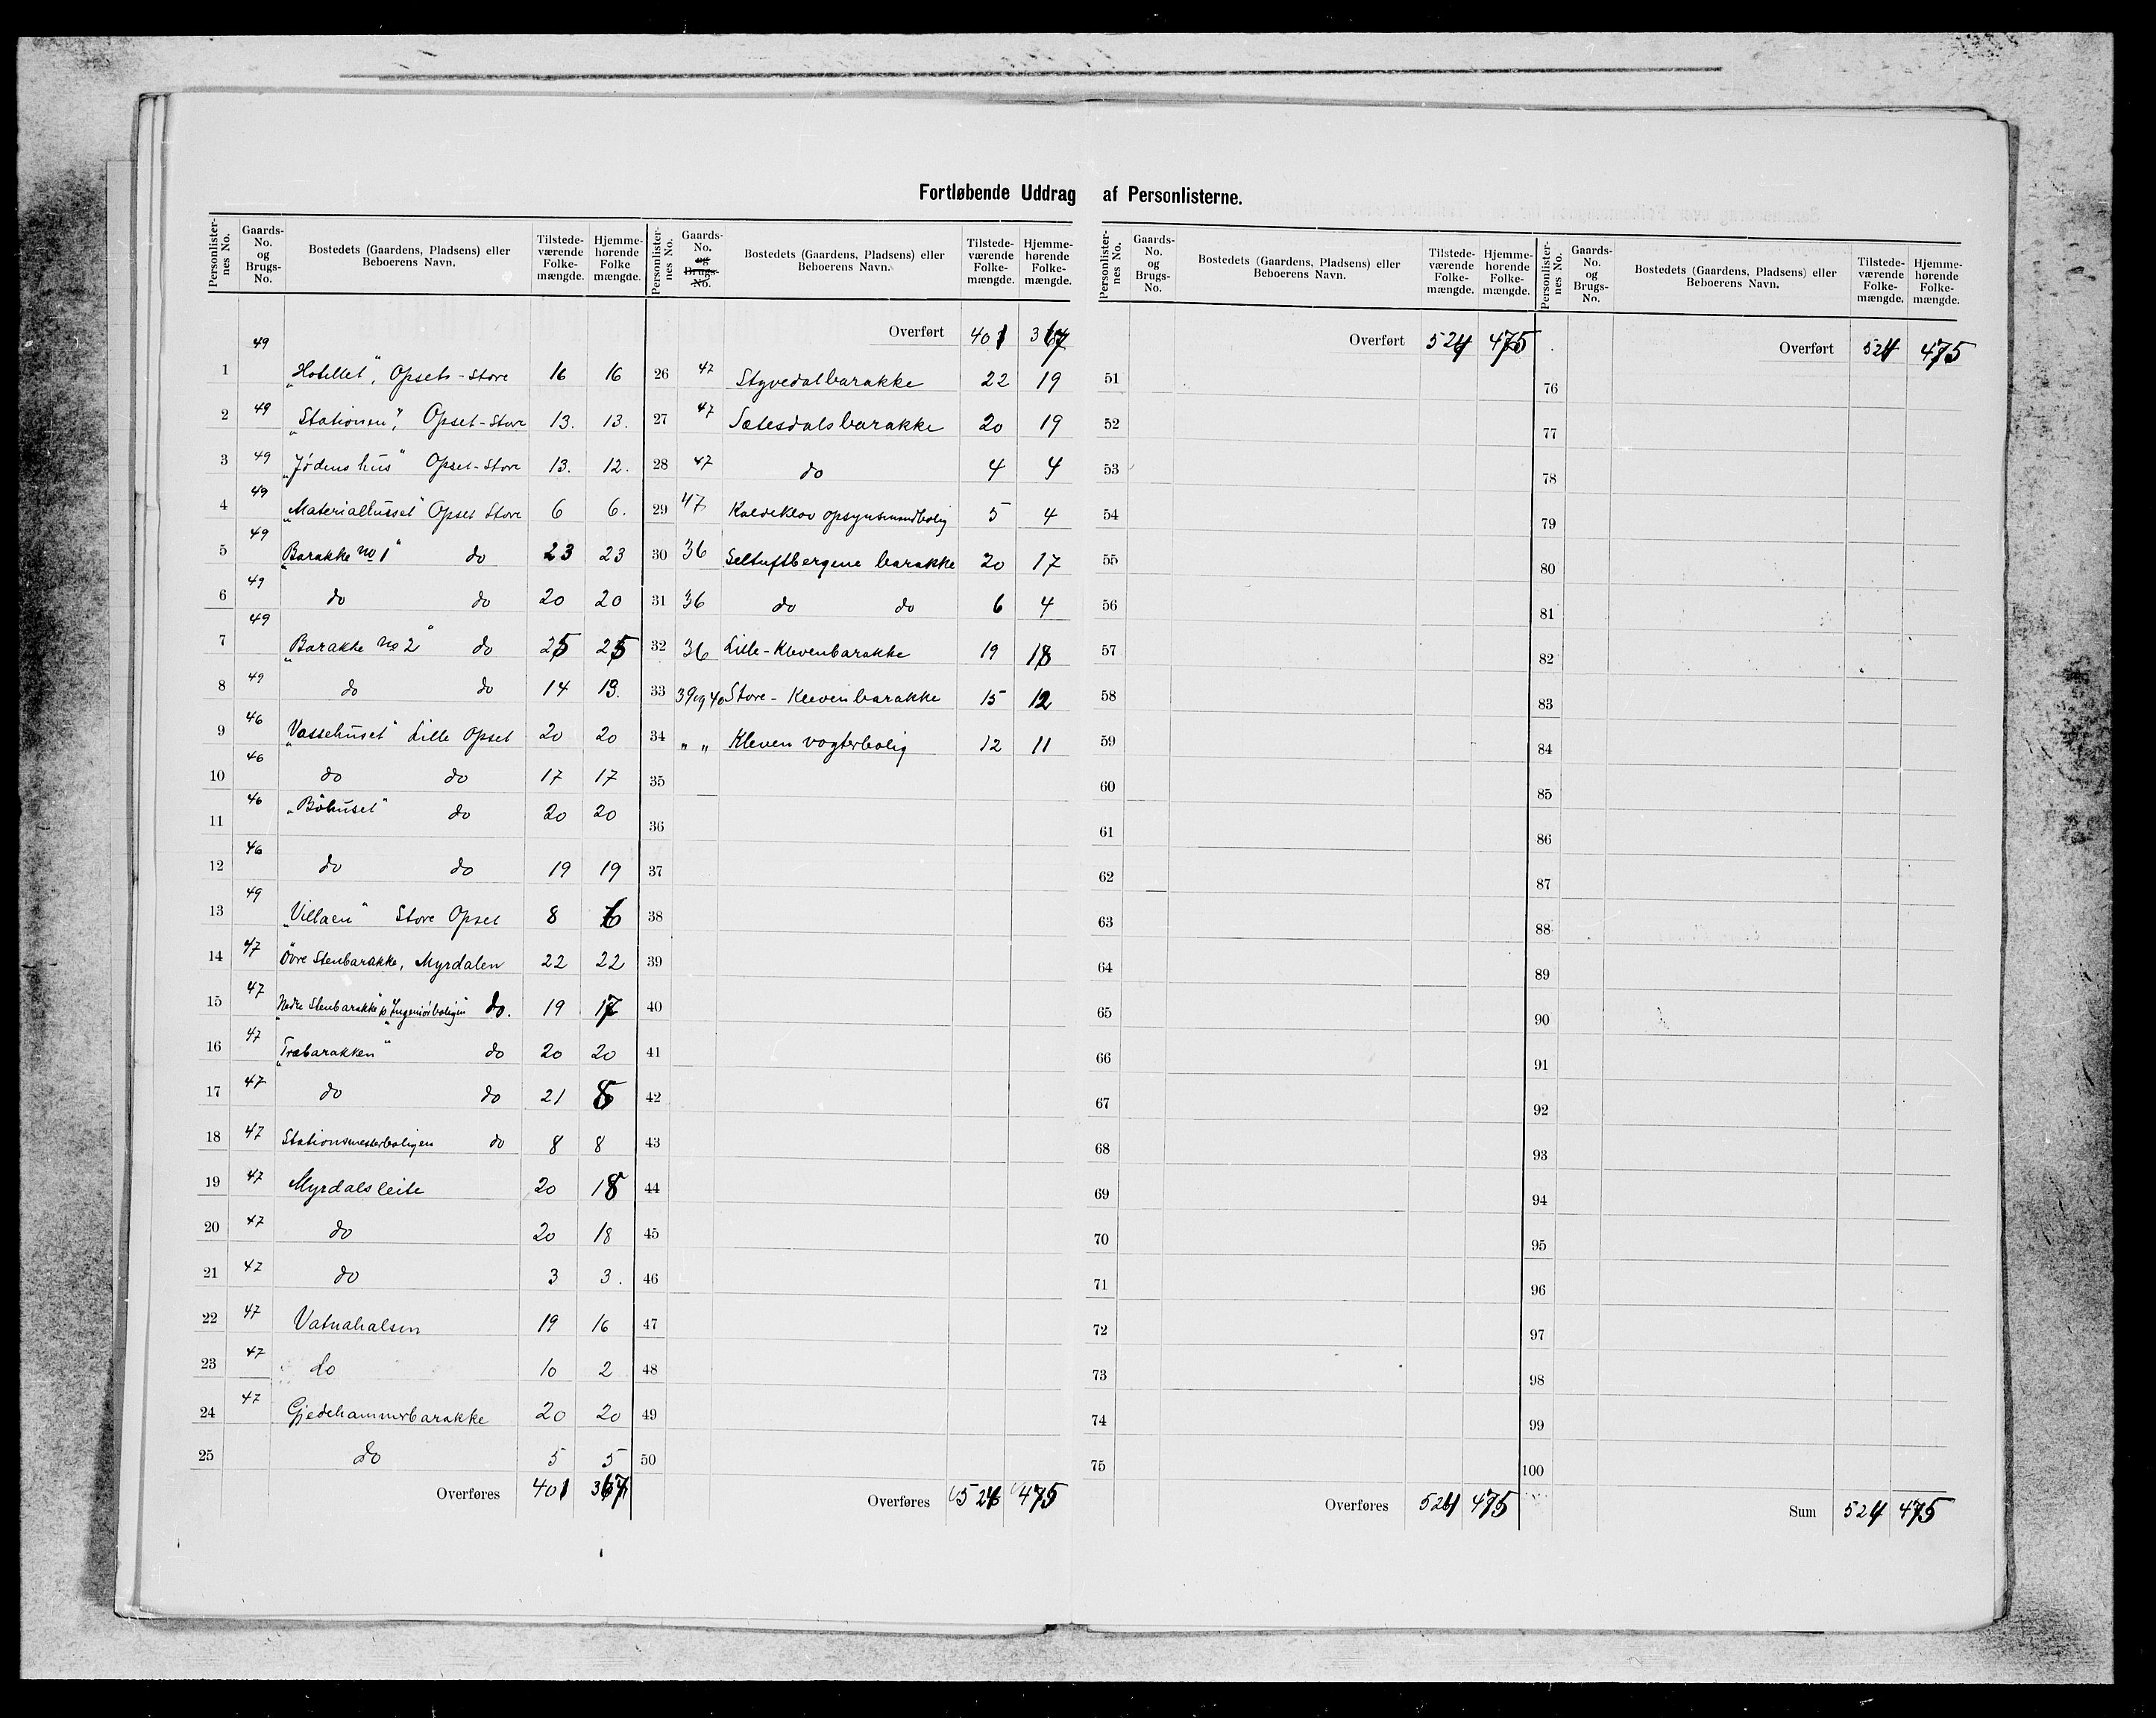 Fortløbende Uddrag af Personlisterne.
Personlister-nes No. Gaards-No. og Brugs-No. Bostedets (Gaardens, Pladsens) eller Beboerens Navn. Tilstede-værende Folke-mængde. Hjemme-hørende Folke mængde.
1 49 „Hotellet", Opset-Store 16 16
2 49 „Stationen", Opset-Store 13. 13.
3 49 „Jødens hus" Opset-Store 13. 12.
4 49 „Materialhuset" Opset Store 6 6.
5 49 „Barakke No 1" do 23 23
6 49 do do 20 20
7 49 „Barakke No 2" do 25 25
8 49 do do 14 13.
9 46 „Vassehuset" Lille Opset 20 20
10 46 do do 17 17
11 46 „Böhuset" do 20 20
12 46 do do 19 19
13 49 „Villaen" Store Opset 8 6
14 47 Övre Stenbarakke, Myrdalen 22 22
15 47 „Nedre Stenbarakke" Ingeniörboligen do. 19 17
16 47 „Træbarakken" do 20 20
17 47 do do 21 8
18 47 Stationsmesterboligen do 8 8
19 47 Myrdalsleite 20 18
20 47 do 20 18
21 47 do 3 3.
22 47 Vatnahalsen 19 16
23 47 do 10 2
24 47 Gjedehammerbarakke 20 20
25 do 5 5
Overføres 401 367
Personlister-nes No. Gaards-No. og Brugs-No. Bostedets (Gaardens, Pladsens) eller Beboerens Navn. Tilstede-værende Folke-mængde. Hjemme-hørende Folke-mængde.
Overført 401 367
26 47 Styvedalbarakke 22 19
27 47 Sætesdalsbarakke 20 19
28 47 do 4 4
29 47 Kaldeklev opsynsmandbolig 5 4
30 36 Seltuftbergene barakke 20 17
31 36 do do 6 4
32 36 Lille-Klevenbarakke 19 18
33 39 og 40 Store-Klevenbarakke 15 12
34 „ „ Kleven vogterbolig 12 11
35
36
37
38
39
40
41
42
43
44
45
46
47
48
49
50
Overføres 524 475
Personlister-nes No. Gaards-No. og Brugs-No. Bostedets (Gaardens, Pladsens) eller Beboerens Navn. Tilstede-værende Folke-mængde. Hjemme-hørende Folke-mængde.
Overført 524 475
51
52
53
54
55
56
57
58
59
60
61
62
63
64
65
66
67
68
69
70
71
72
73
74
75
Overføres 524 475
Personlister-nes No. Gaards-No. og Brugs-No. Bostedets (Gaardens, Pladsens) eller Beboerens Navn. Tilstede-værende Folke-mængde. Hjemme-hørende Folke-mængde.
Overført 524 475
76
77
78
79
80
81
82
83
84
85
86
87
88
89
90
91
92
93
94
95
96
97
98
99
100
Sum 524 475